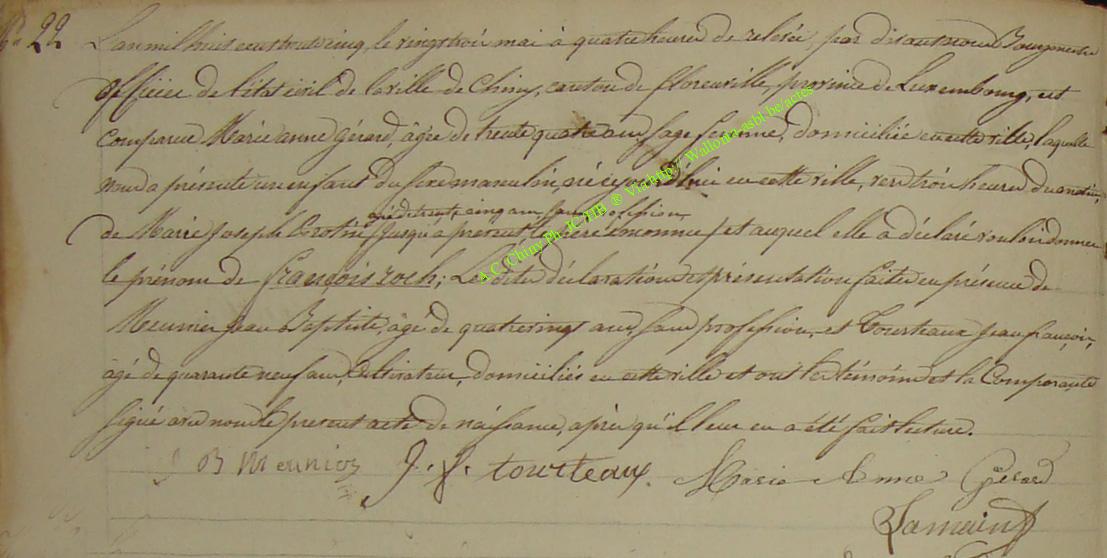 N° 22
L'an mil huit cent trente cinq, le vingt trois mai à quatre heures de relevée, par devant nous Bourgmestre
officier de l'état civil de la ville de Chiny, canton de florenville, province de Luxembourg, est
comparue Marie anne Gérard, âgée de trente quatre ans sage femme, domiciliée en cette ville, laquelle
nous a présenté un enfant du sexe masculin, né ce jourd'hui en cette ville, vers trois heures du matin,
âgée de trente cinq ans sans profession
de Marie Joseph jusqu'à present le père innonmé, et auquel elle a déclaré vouloir donner
le prénom de françois roch; Les dites déclaration et présentation faites en présence de
Meunier Jean Baptiste, âgé de quatrevingt ans, sans profession, et Tourteaux Jean françois,
âgé de quarante neuf ans, Cultivateur, domiciliés en cette ville et ont les témoins et la Comparante
signé avec nous le present acte de naissance, après qu'il leur en a été fait lecture.
J B Meunier J. f. tourteaux. Marie Anne Gérard
A.C. Chiny Ph. JC-HH ® Via http:// Wallonia-asbl-be/actes